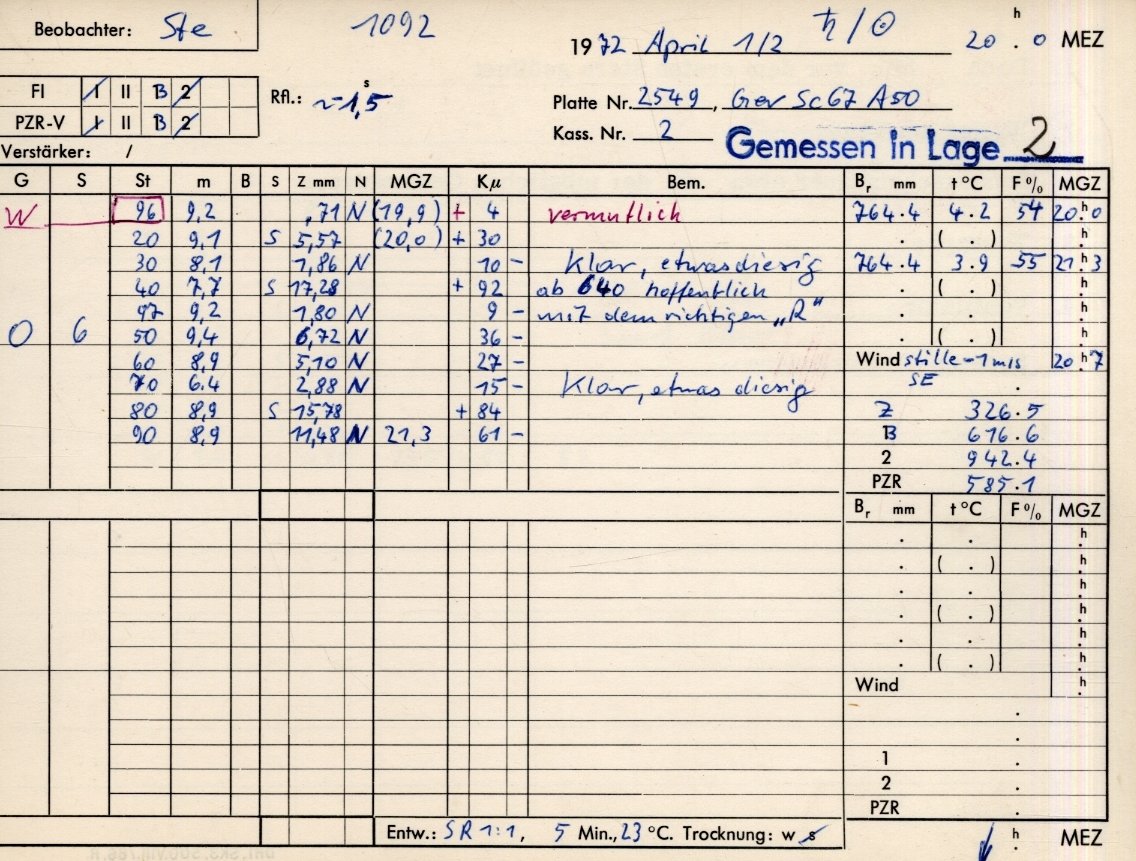 Beobachter: Ste 1092 1972 April 1/2 ♄/☉ 20 h . 0 MEZ
FI I II B 2 Rfl.: ~ -1,5 s Platte Nr. 2549, Gev Sc67 A50
PZR-V I II B 2 Kass. Nr. 2 Gemessen in Lage 2
Verstärker: /
G S St m B S Z mm N MGZ Kµ Bem. Br mm t °C F % MGZ
W 96 9,2 ,71 N (19,9) + 4 vermutlich 764.4 4.2 54 20 h 0
20 9,1 S 5,57 (20,0) + 30 . ( . ) h
30 8,1 1,86 N 10 - Klar, etwas diesig 764.4 3.9 55 21 h 3
40 7,7 S 17,28 + 92 ab 640 hoffentlich . ( . ) h
97 9,2 1,80 N 9 - mit dem richtigen „R" . . h
O 6 50 9,4 6,72 N 36 - . ( . ) h
60 8,9 5,10 N 27 - Wind stille - 1 m/s 20 h 7
70 6.4 2,88 N 15 - Klar, etwas diesig SE .
80 8,9 S 15,78 + 84 Z 326.5
90 8,9 11,48 N 21,3 61 - B 616.6
2 942.4
PZR 585.1
Br mm t °C F % MGZ
. . h
. ( . ) h
. . h
. ( . ) h
. . h
. ( . ) h
Wind h
.
.
1 .
2 .
PZR .
Entw.: SR 1:1, 5 Min., 23 °C. Trocknung: w s h . MEZ